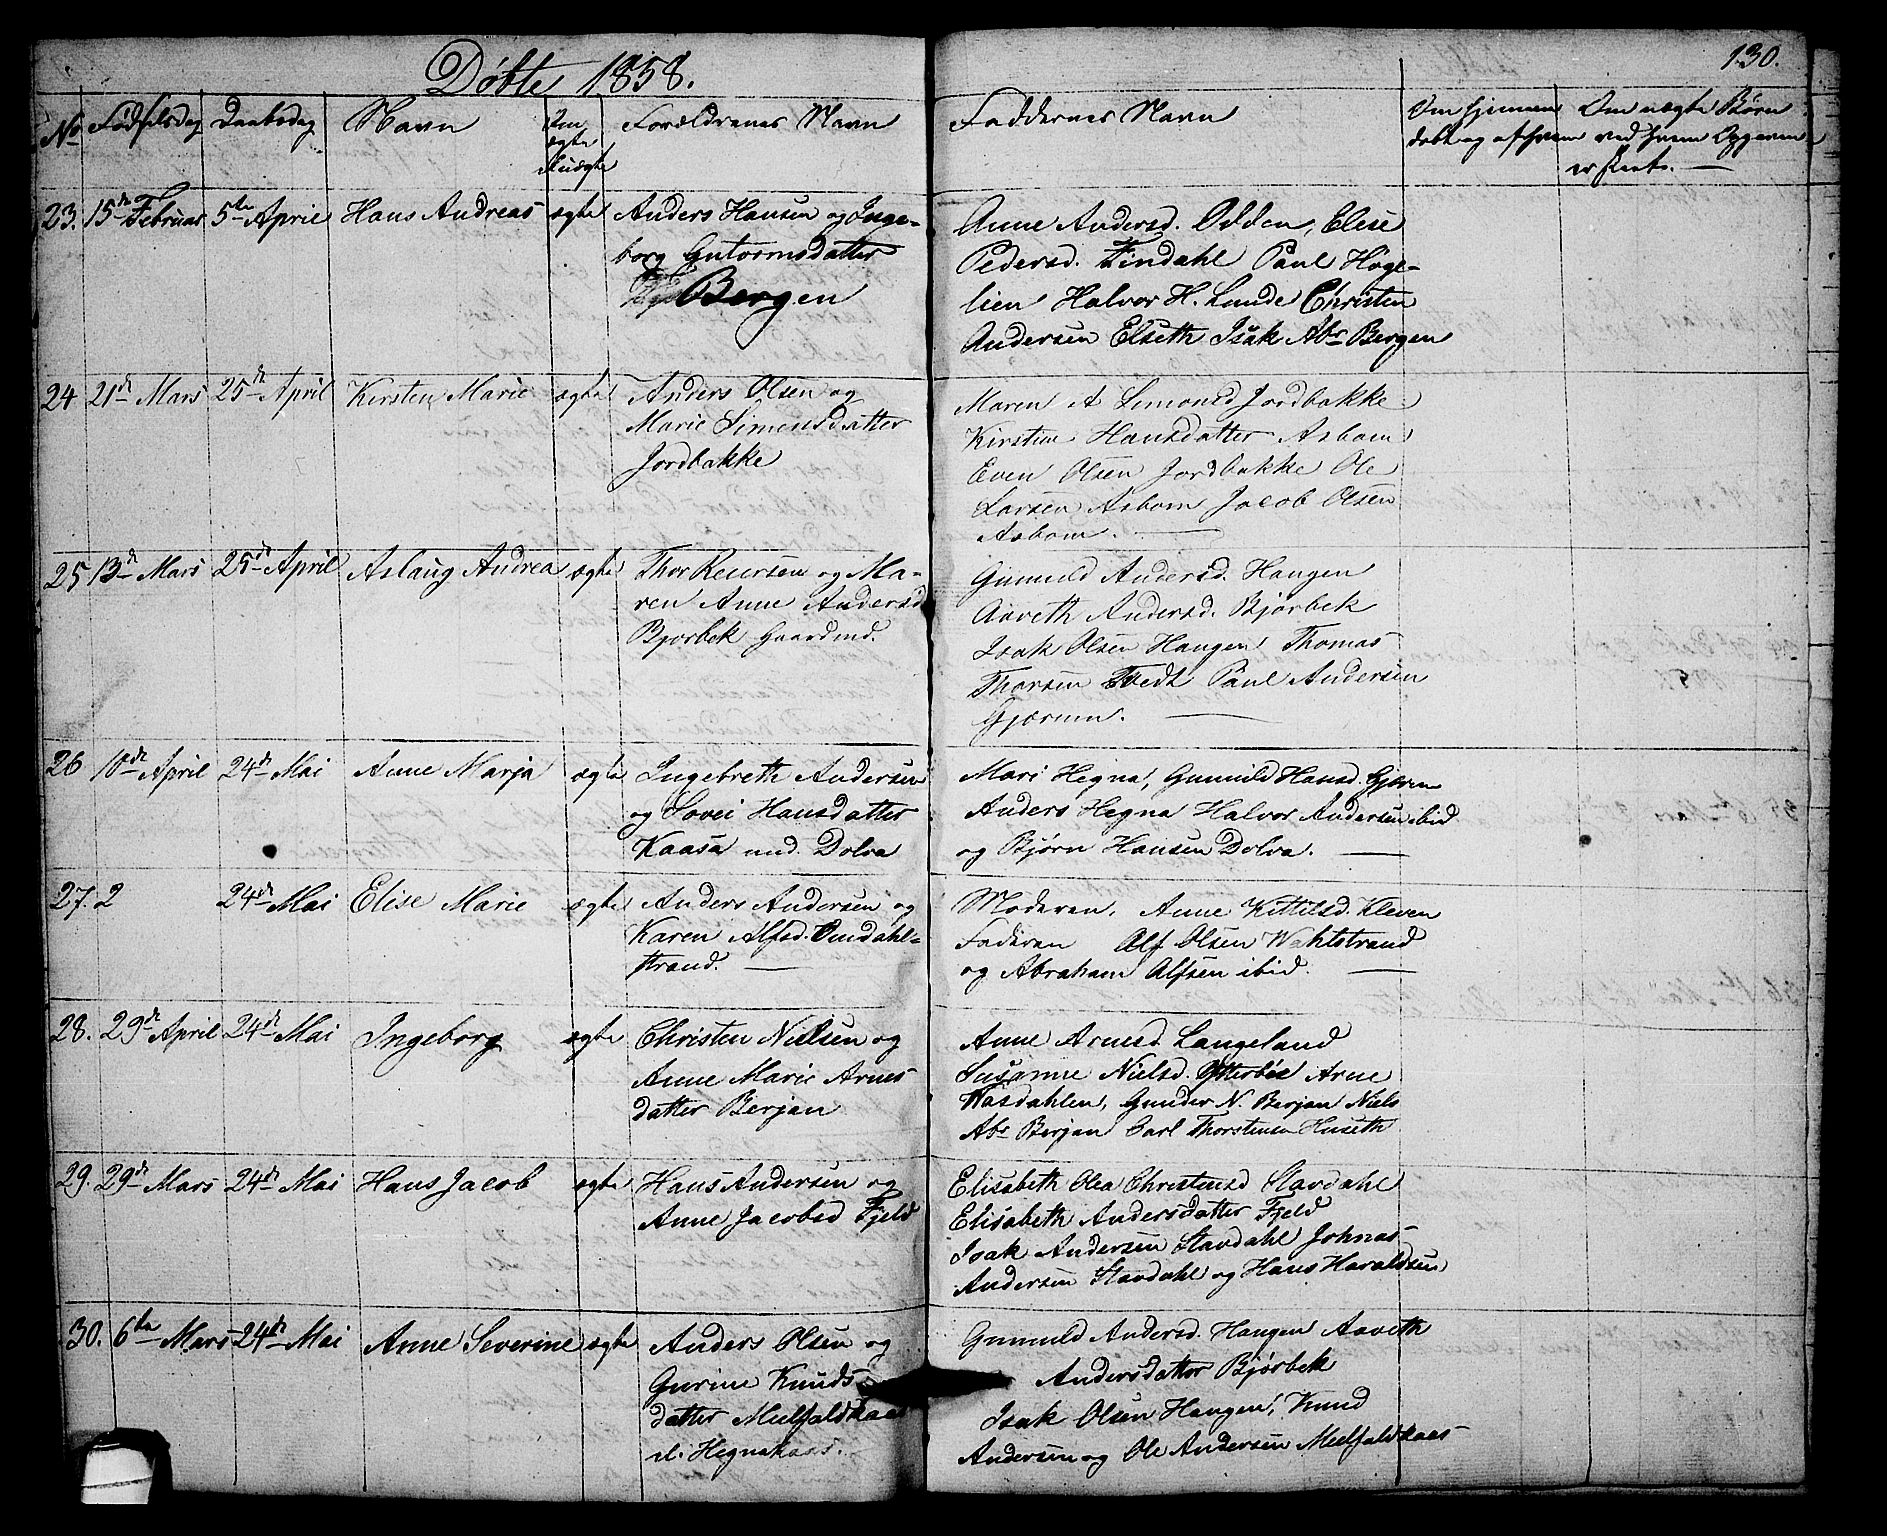 Døbte 1858.
130.
No Fødselsdag Daabsdag Navn Om ægte el. uægte Forældrenes Navn Faddernes Navn Om hjemmedøbt og af hvem Om uægte Børn ved hvem Opgaven er skeet. —
23. 15de Februar 5te April Hans Andreas ægte Anders Hansen og Inge-
borg Gutormsdatter
Bergen
Anne Andersd. Odden, Elise
Pedersd. Findahl Paul Høge-
lien Halvor H. Lunde Christen
Andersen Elseth Isak Abr Bergen
24 21de Mars 25de April Kirsten Marie ægte Anders Olsen og
Marie Simensdatter
Jordbakke
Maren A Simensd Jordbakke
Kirstine Hansdatter Asbom
Even Olsen Jordbakke Ole
Larsen Asbom Jacob Olsen
Asbom. —
25 13de Mars 25de April Aslaug Andrea ægte Thor Reiersen og Ma-
ren Anne Andersd
Bjørbek Gaardmd.
Gunuld Andersd. Haugen
Aaveth Andersd. Bjørbek
Isak Olsen Haugen Thomas
Thorsen Tvedt Paul Andersen
Gjærum. —
26 10de April 24de Mai Anne Marja ægte Ingebreth Andersen
og Sovei Hansdatter
Kaasa und. Dolva
Mari Hegna, Gunuld Hansd. Gjærum
Anders Hegna Halvor Andersen ibid
og Bjørn Hansen Dolva. —
27. 2 24de Mai Elise Marie ægte Anders Andersen og
Karen Alfsd. Omdahl-
strand. —
Moderen, Anne Kittilsd. Kleven
Faderen Alf Olsen Wahlstrand
og Abraham Alfsen ibid. —
28. 29de April 24de Mai Ingeborg ægte Christen Nielsen og
Anne Marie Arnes
datter Berjan
Anne Arnesd Langeland
Susanne Nielsd. Ytterbøe Arne
Wasdahlen, Gunder N. Berjan Niels
Abr Berjan Carl Thorstensen Huseth
29. 29de Mars 24de Mai Hans Jacob ægte Hans Andersen og
Anne Jacobsd Fjeld
Elisabeth Olea Christensd Stavdahl
Elisabeth Andersdatter Fjeld
Isak Andersen Stavdahl Johnas
Andersen Stavdahl og Hans Haraldsen
30. 6te Mars 24de Mai Anne Severine ægte Anders Olsen og
Gurine Knuds
datter Meelfaldkaas
el. Hegnakaas.
Gunuld Andersd. Haugen Aaveth
Andersdatter Bjørbek
Isak Olsen Haugen, Knud
Andersen og Ole Andersen Meelfaldkaas